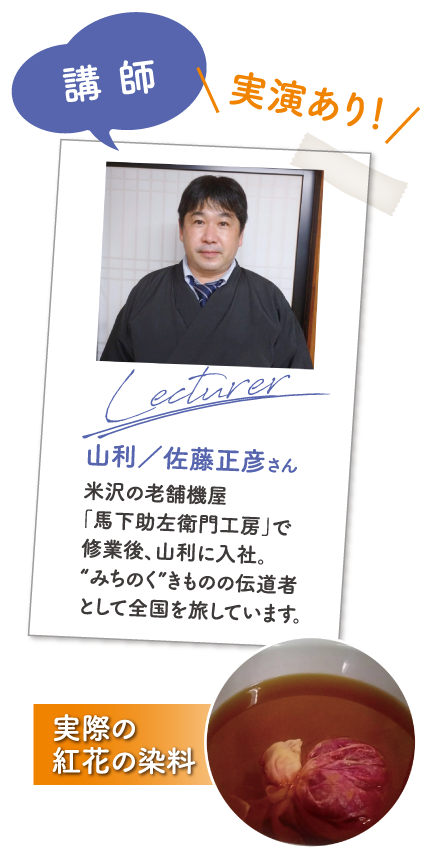 講師
実演あり!
Lecturer
山利／佐藤正彦さん
米沢の老舗機屋
「馬下助左衛門工房」で
修業後、山利に入社。
“みちのく”きものの伝道者
として全国を旅しています。
実際の
紅花の染料